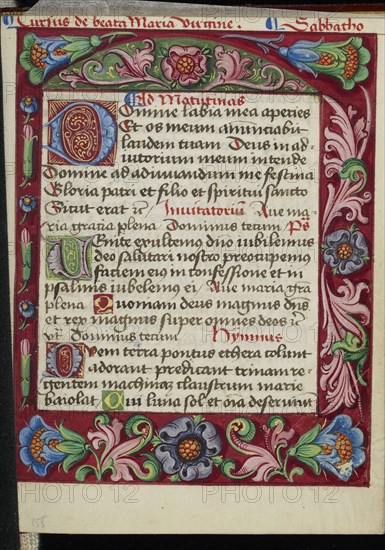 Cursus de beata Maria virgine. Sabbatho
Ad Matutinas
Domine labia mea aperies
Et os meum anunciabit
laudem tuam Deus in ad
iutorium meum intende
Domine ad adiuvandum me festina
Gloria patri et filio et spiritui sancto
Sicut erat Invitatorium Ave ma
ria gratia plena Dominus tecum Ps
Venite exultemus dno iubilemus
deo salutari nostro preocupemus
faciem eius in confessione et in
psalmis iubilemus ei Ave maria gra
plena Quoniam deus magnus dns
et rex magnus super omnes deos
Dominus tecum Hymnus
Quem terra pontus ethera colunt
adorant predicant trinam re
gentem machinam claustrum marie
baiolat Cui luna sol et oia deserviunt
158
PHOTO 12